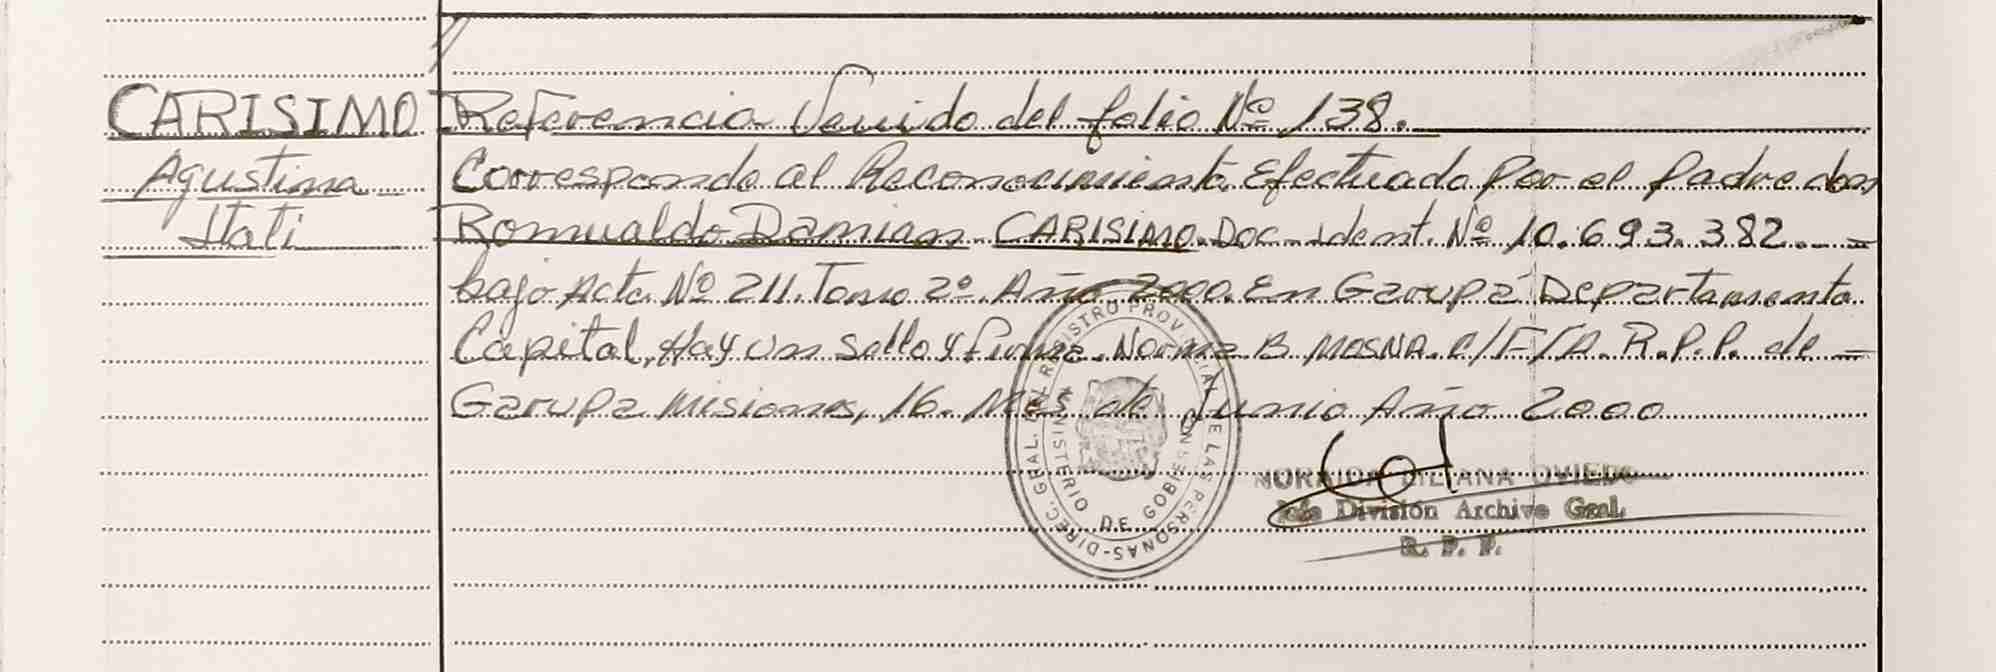 CARISIMO
Agustina
Itati
Referencia Venido del folio Nº 138.
Corresponde al Reconocimiento Efectuado Por el Padre don
Romualdo Damian CARISIMO. Doc. Ident. Nº 10.693.382. —
bajo Acta Nº 211. Tomo 2º. Año 2000. En Garupá Departamento
Capital. Hay un Sello y firma. Norma B MOSNA. E/F/A. R.P.P. de —
Garupa Misiones, 16. Mes de Junio Año 2000
DIREC. GRAL. DEL REGISTRO PROVINCIAL DE LAS PERSONAS-
MINISTERIO DE GOBIERNO
NORAIDA LILIANA OVIEDO
Jefe División Archivo Gral.
R. P. P.